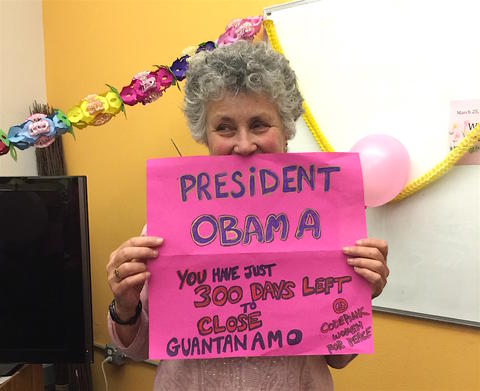 PRESIDENT
OBAMA
YOU HAVE JUST
300 DAYS LEFT
TO
CLOSE
GUANTANAMO
CODEPINK
WOMEN
FOR PEACE
March 25,